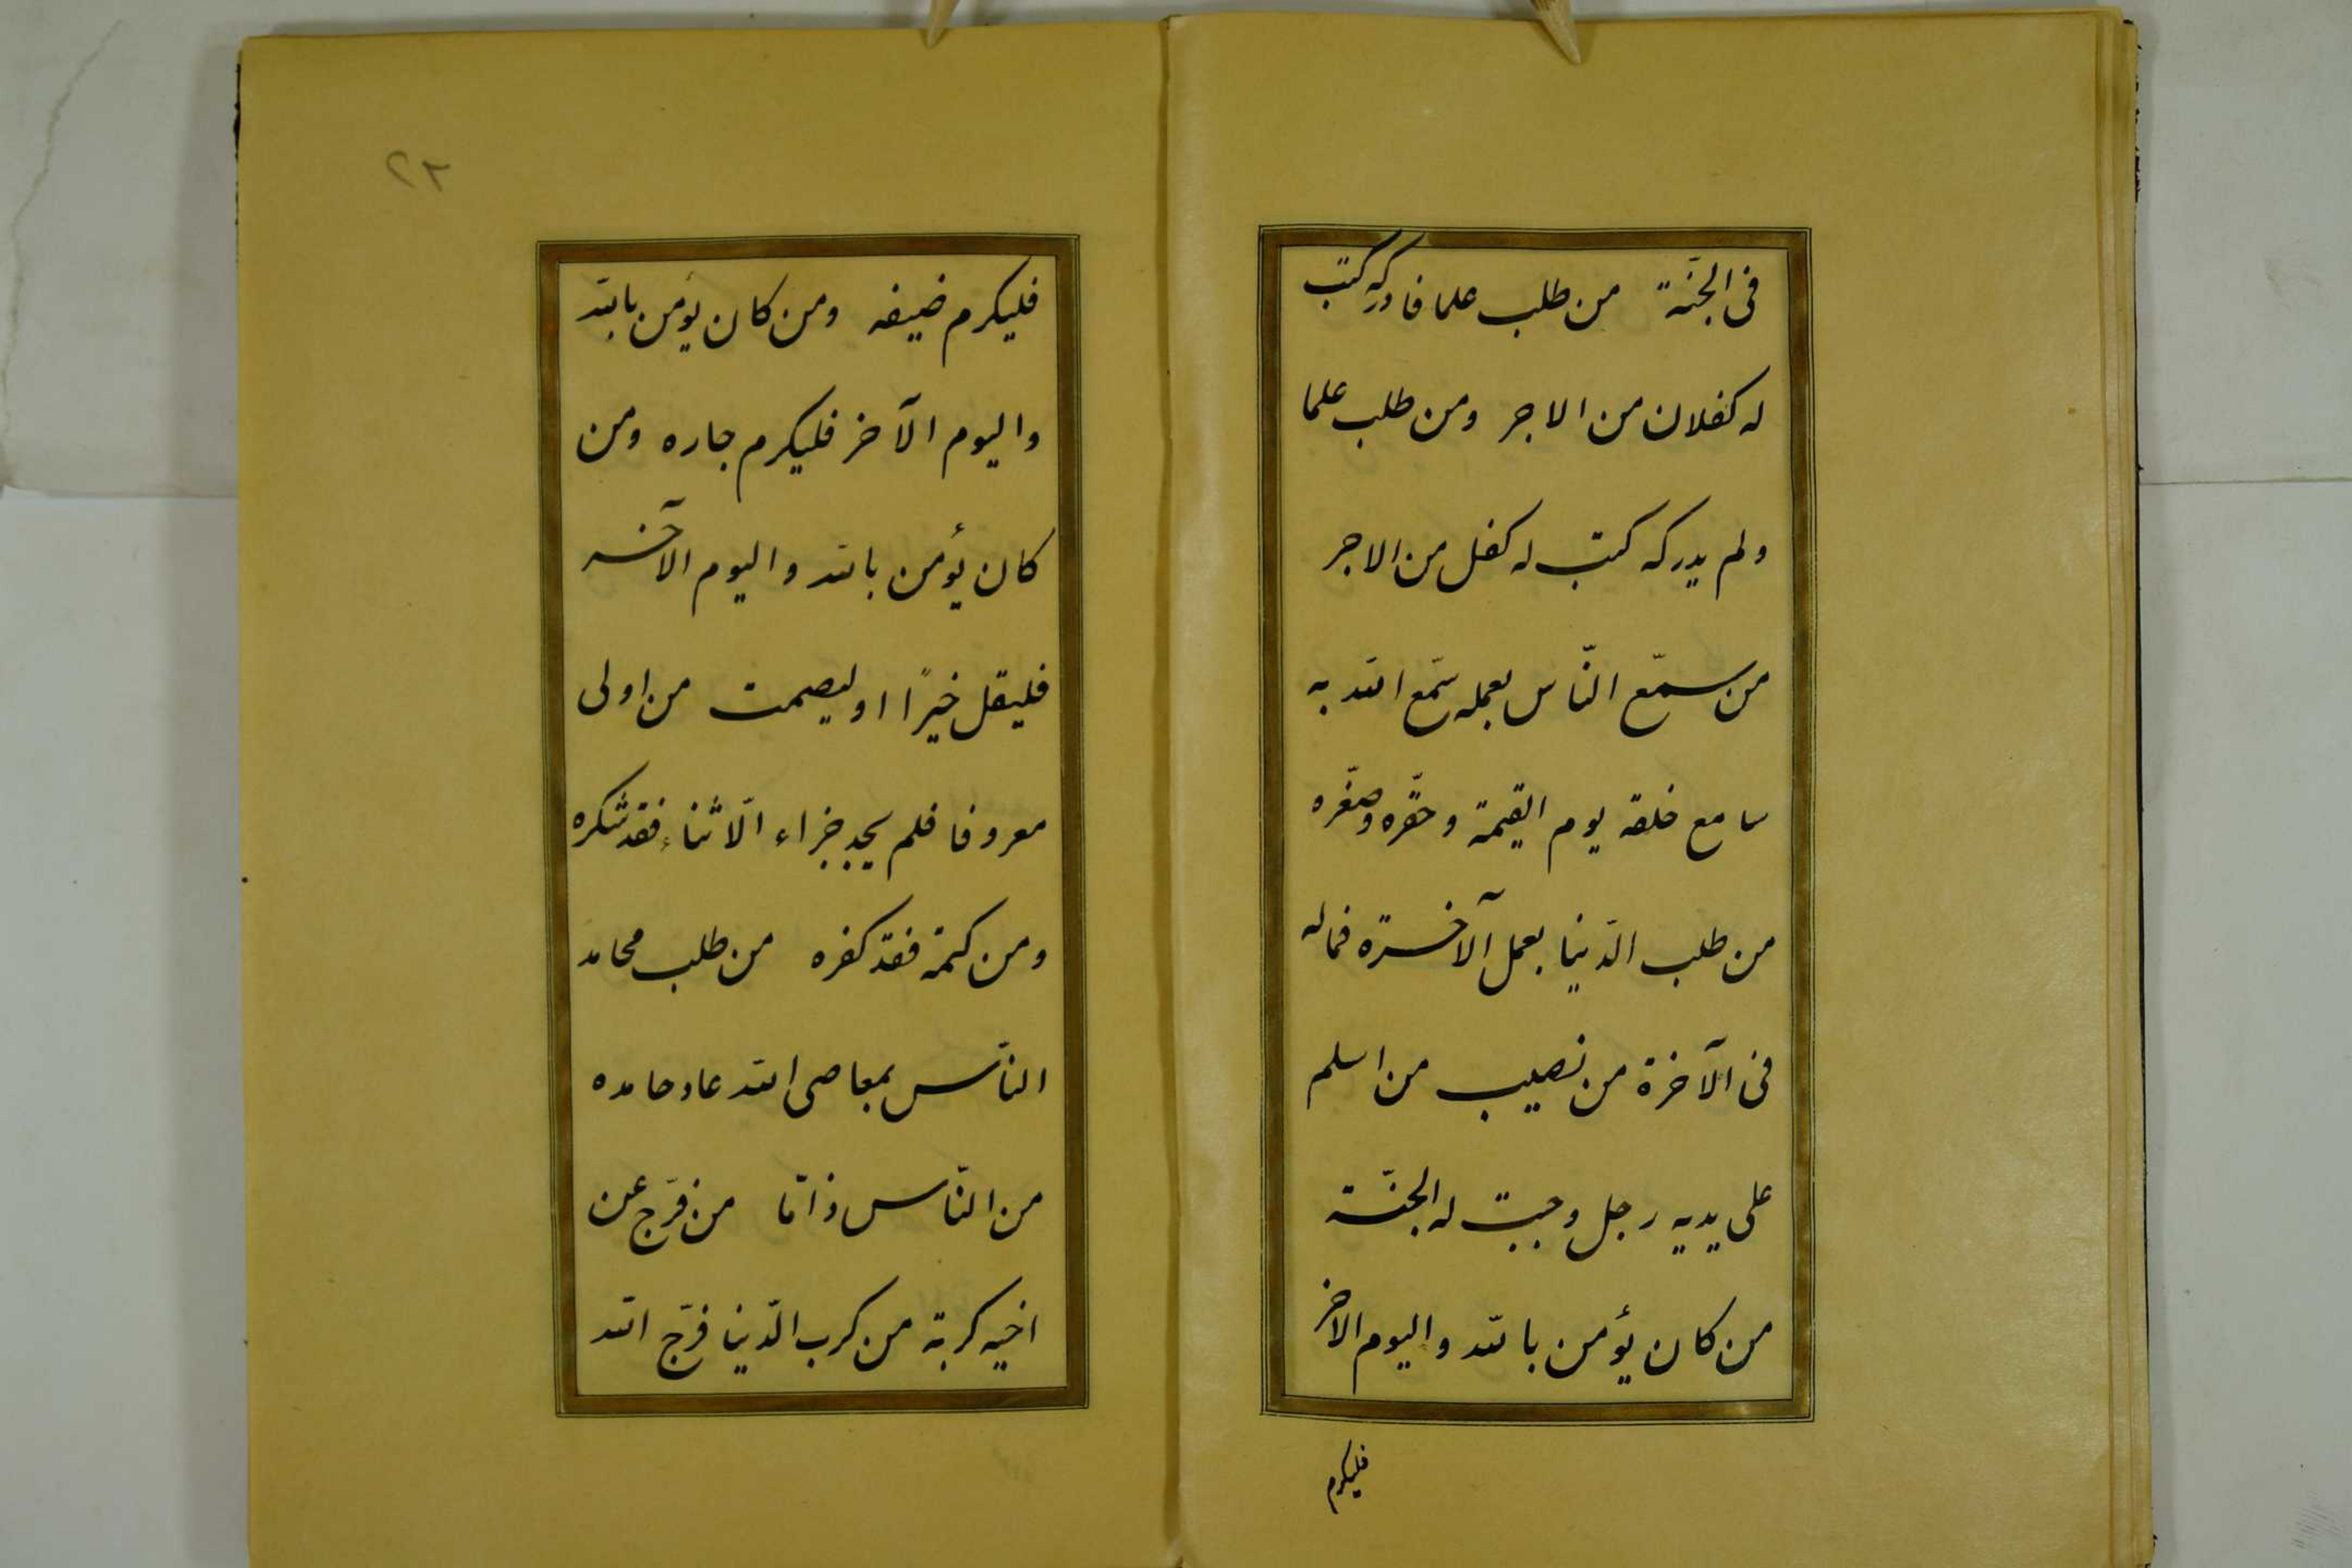 فى الجنّة من طلب علما فادركه كتب
له كفلان من الاجر ومن طلب علما
ولم يدركه كتب له كفل من الاجر
من سمّع النّاس بعمله سمّع الله به
سامع خلقه يوم القيمة وحقّره وصغّره
من طلب الدّنيا بعمل الآخرة فماله
فى الآخرة من نصيب من اسلم
على يديه رجل وجبت له الجنّة
من كان يؤمن بالله واليوم الآخر
فليكرم
٢٢
فليكرم ضيفه ومن كان يؤمن بالله
واليوم الآخر فليكرم جاره ومن
كان يؤمن بالله واليوم الآخر
فليقل خيرًا او ليصمت من اولى
معروفا فلم يجد جزاء الّا ثناء فقد شكره
ومن كتمه فقد كفره من طلب محامد
النّاس بمعاصى الله عاد حامده
من النّاس ذامّا من فرّج عن
اخيه كربة من كرب الدّنيا فرّج الله